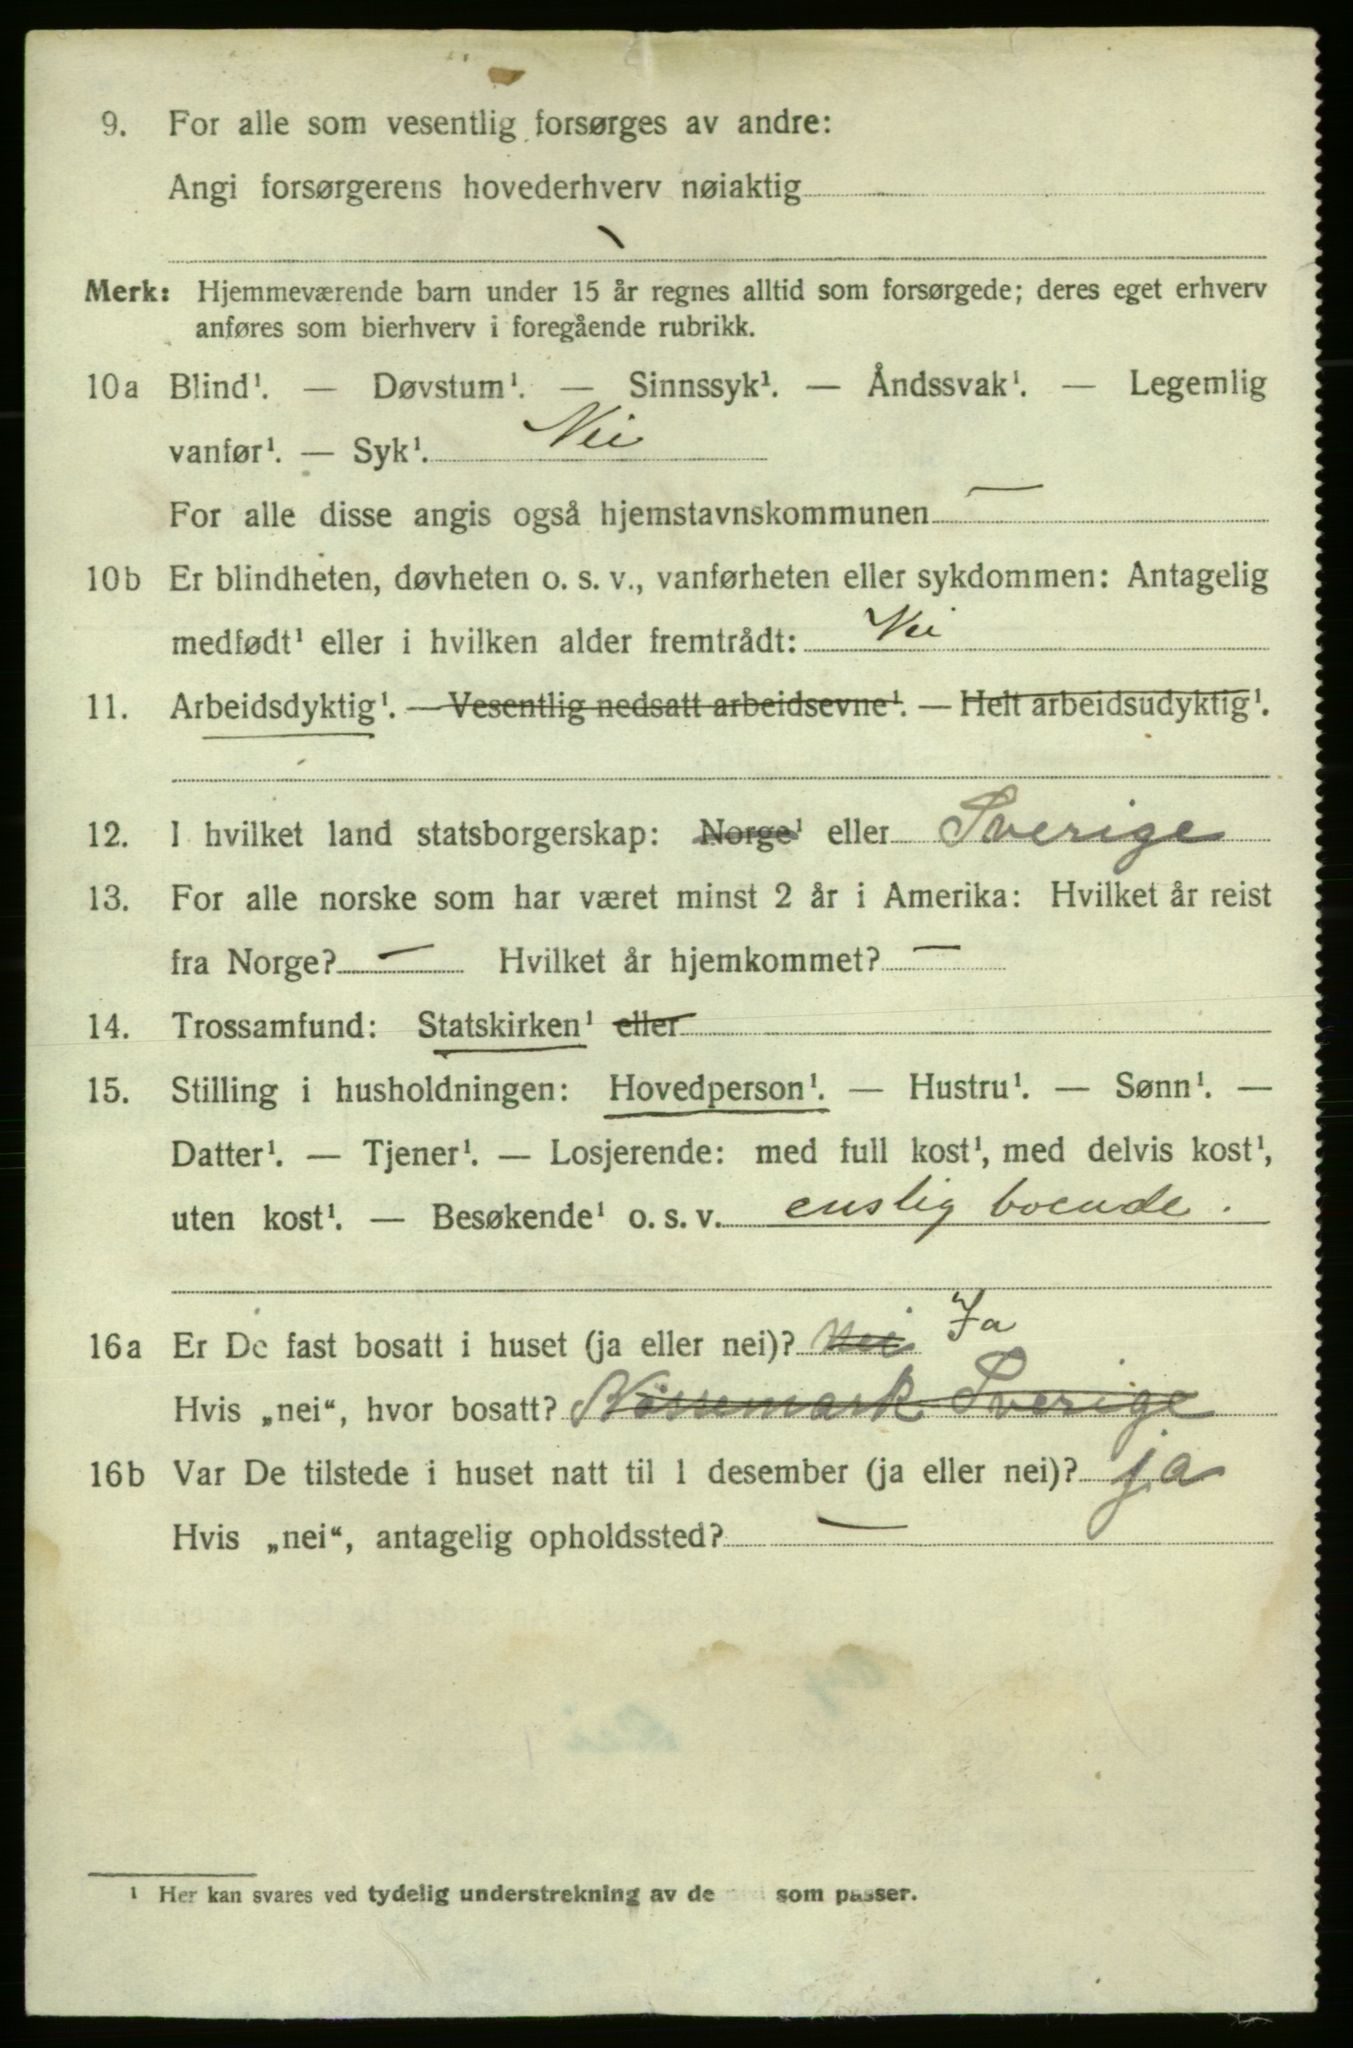 9. For alle som vesentlig forsørges av andre:
Angi forsørgerens hovederhverv nøiaktig
Merk: Hjemmeværende barn under 15 år regnes alltid som forsørgede; deres eget erhverv
anføres som bierhverv i foregående rubrikk.
10a Blind¹. — Døvstum¹. — Sinnssyk¹. — Åndssvak¹. — Legemlig
vanfør¹. — Syk¹. Nei
For alle disse angis også hjemstavnskommunen —
10b Er blindheten, døvheten o. s. v., vanførheten eller sykdommen: Antagelig
medfødt¹ eller i hvilken alder fremtrådt: Nei
11. Arbeidsdyktig¹. — Vesentlig nedsatt arbeidsevne¹. — Helt arbeidsudyktig¹.
12. I hvilket land statsborgerskap: Norge¹ eller Sverige
13. For alle norske som har været minst 2 år i Amerika: Hvilket år reist
fra Norge? — Hvilket år hjemkommet? —
14. Trossamfund: Statskirken¹ eller
15. Stilling i husholdningen: Hovedperson¹. — Hustru¹. — Sønn¹. —
Datter¹. — Tjener¹. — Losjerende: med full kost¹, med delvis kost¹,
uten kost¹. — Besøkende¹ o. s. v. enslig boende.
16a Er De fast bosatt i huset (ja eller nei)? Nei Ja
Hvis „nei“, hvor bosatt? Nössemark Sverige
16b Var De tilstede i huset natt til 1 desember (ja eller nei)? ja
Hvis „nei“, antagelig opholdssted? —
¹ Her kan svares ved tydelig understrekning av de som passer.